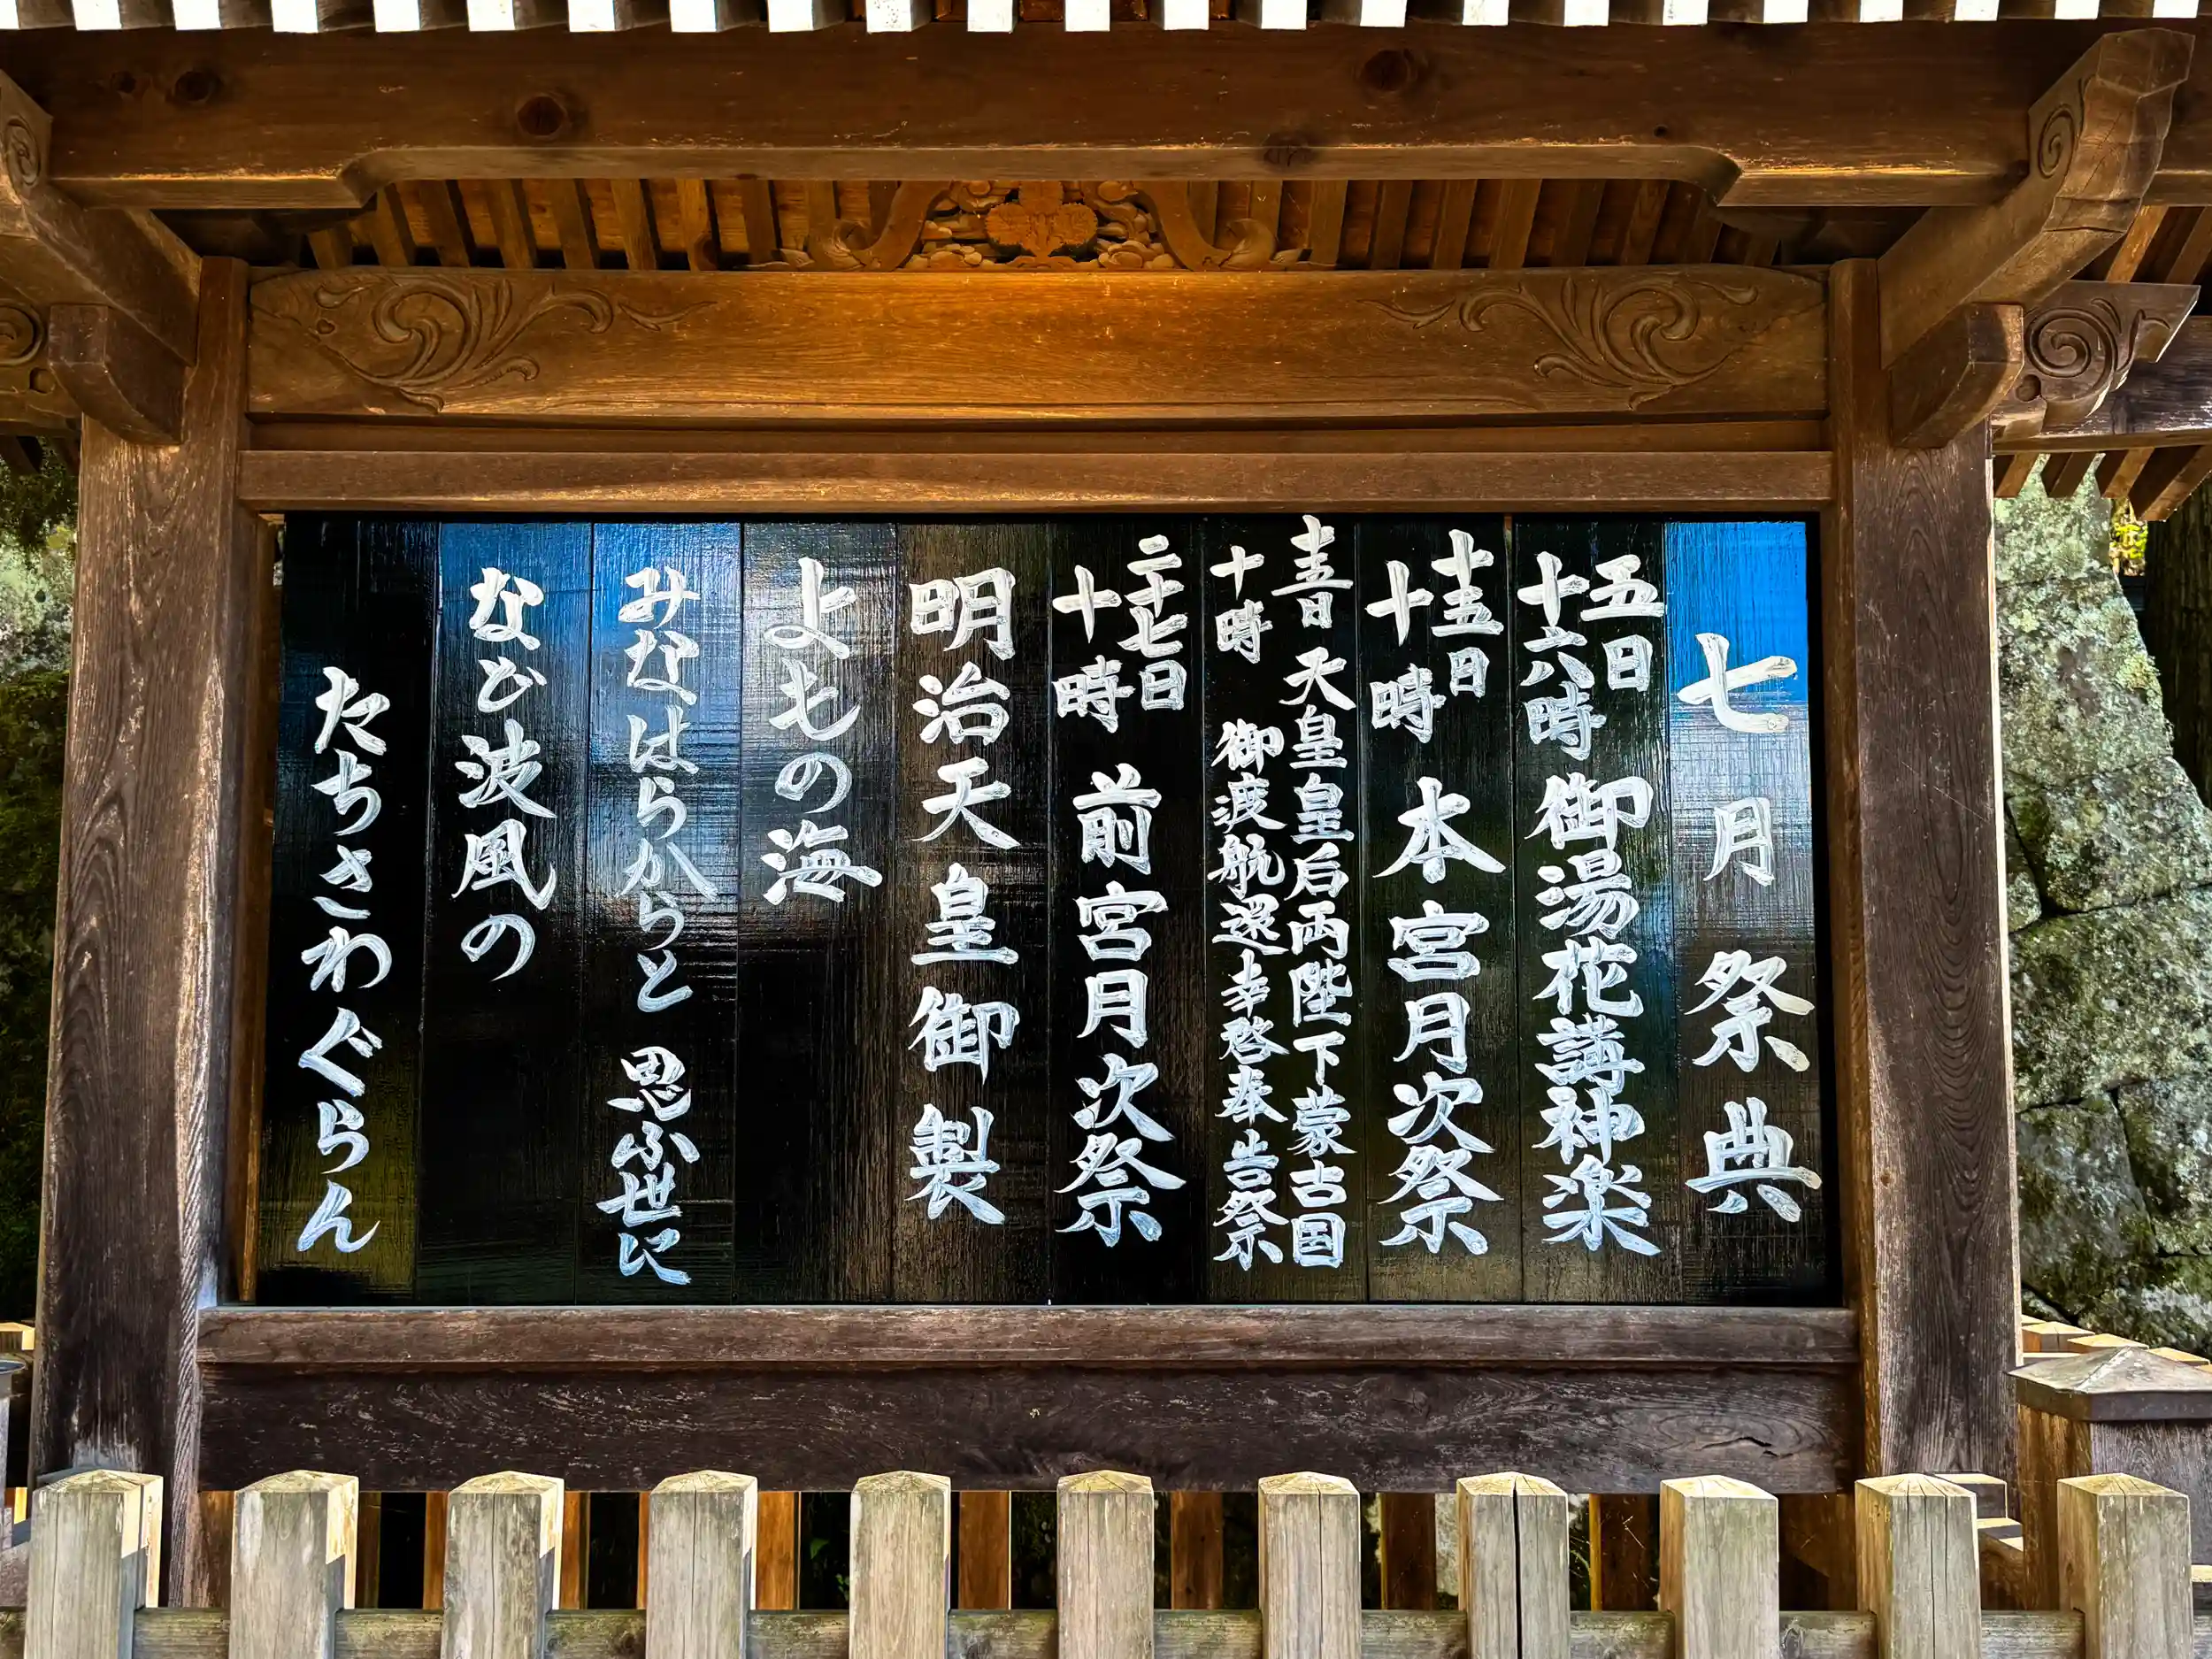 七月祭典
五日
十六時 御湯花講神楽
十五日
十時 本宮月次祭
十五日 天皇皇后両陛下蒙古国
十時 御渡航還幸啓奉告祭
二十七日
十時 前宮月次祭
明治天皇御製
よもの海
みなはらからと 思ふ世に
など波風の
たちさわぐらん